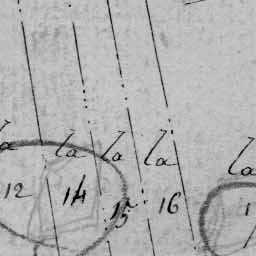 la la la la la
12 14 15 16 1